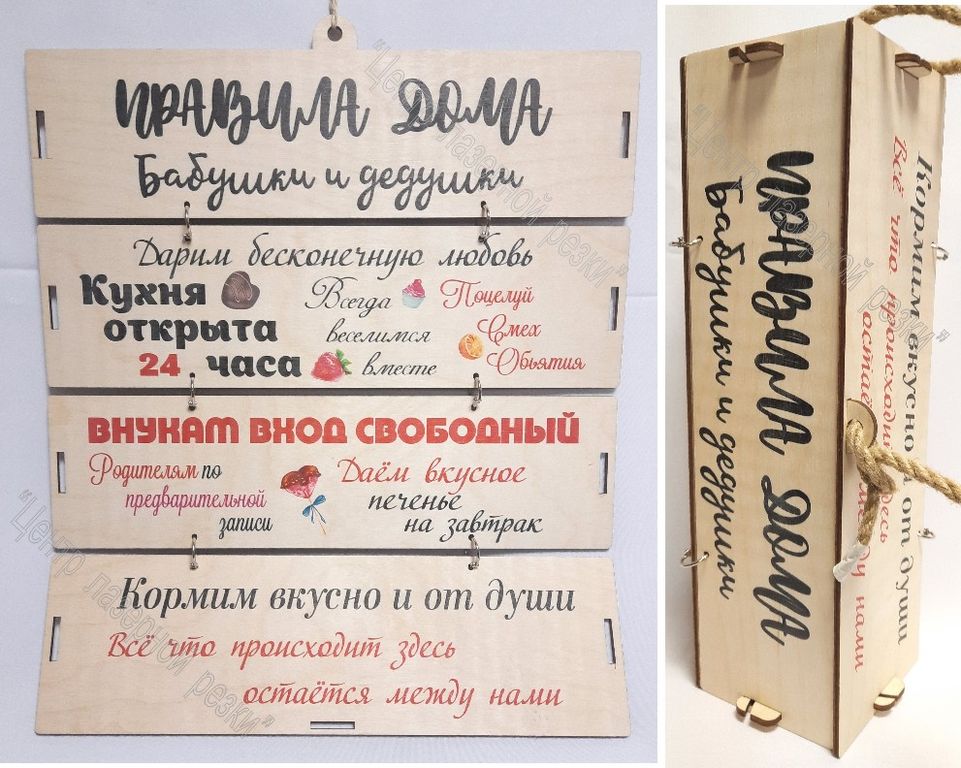 ПРАВИЛА ДОМА
Бабушки и дедушки
Дарим бесконечную любовь
Кухня
открыта
24 часа
Всегда
веселимся
вместе
Поцелуй
Смех
Объятия
ВНУКАМ ВХОД СВОБОДНЫЙ
Родителям по
предварительной
записи
Даём вкусное
печенье
на завтрак
Кормим вкусно и от души
Всё что происходит здесь
остаётся между нами
"Центр лазерной резки"
"Центр лазерной резки"
ПРАВИЛА ДОМА
Бабушки и дедушки
Кормим вкусно и от души
Всё что происходит здесь
остаётся между нами
"Центр лазерной резки"